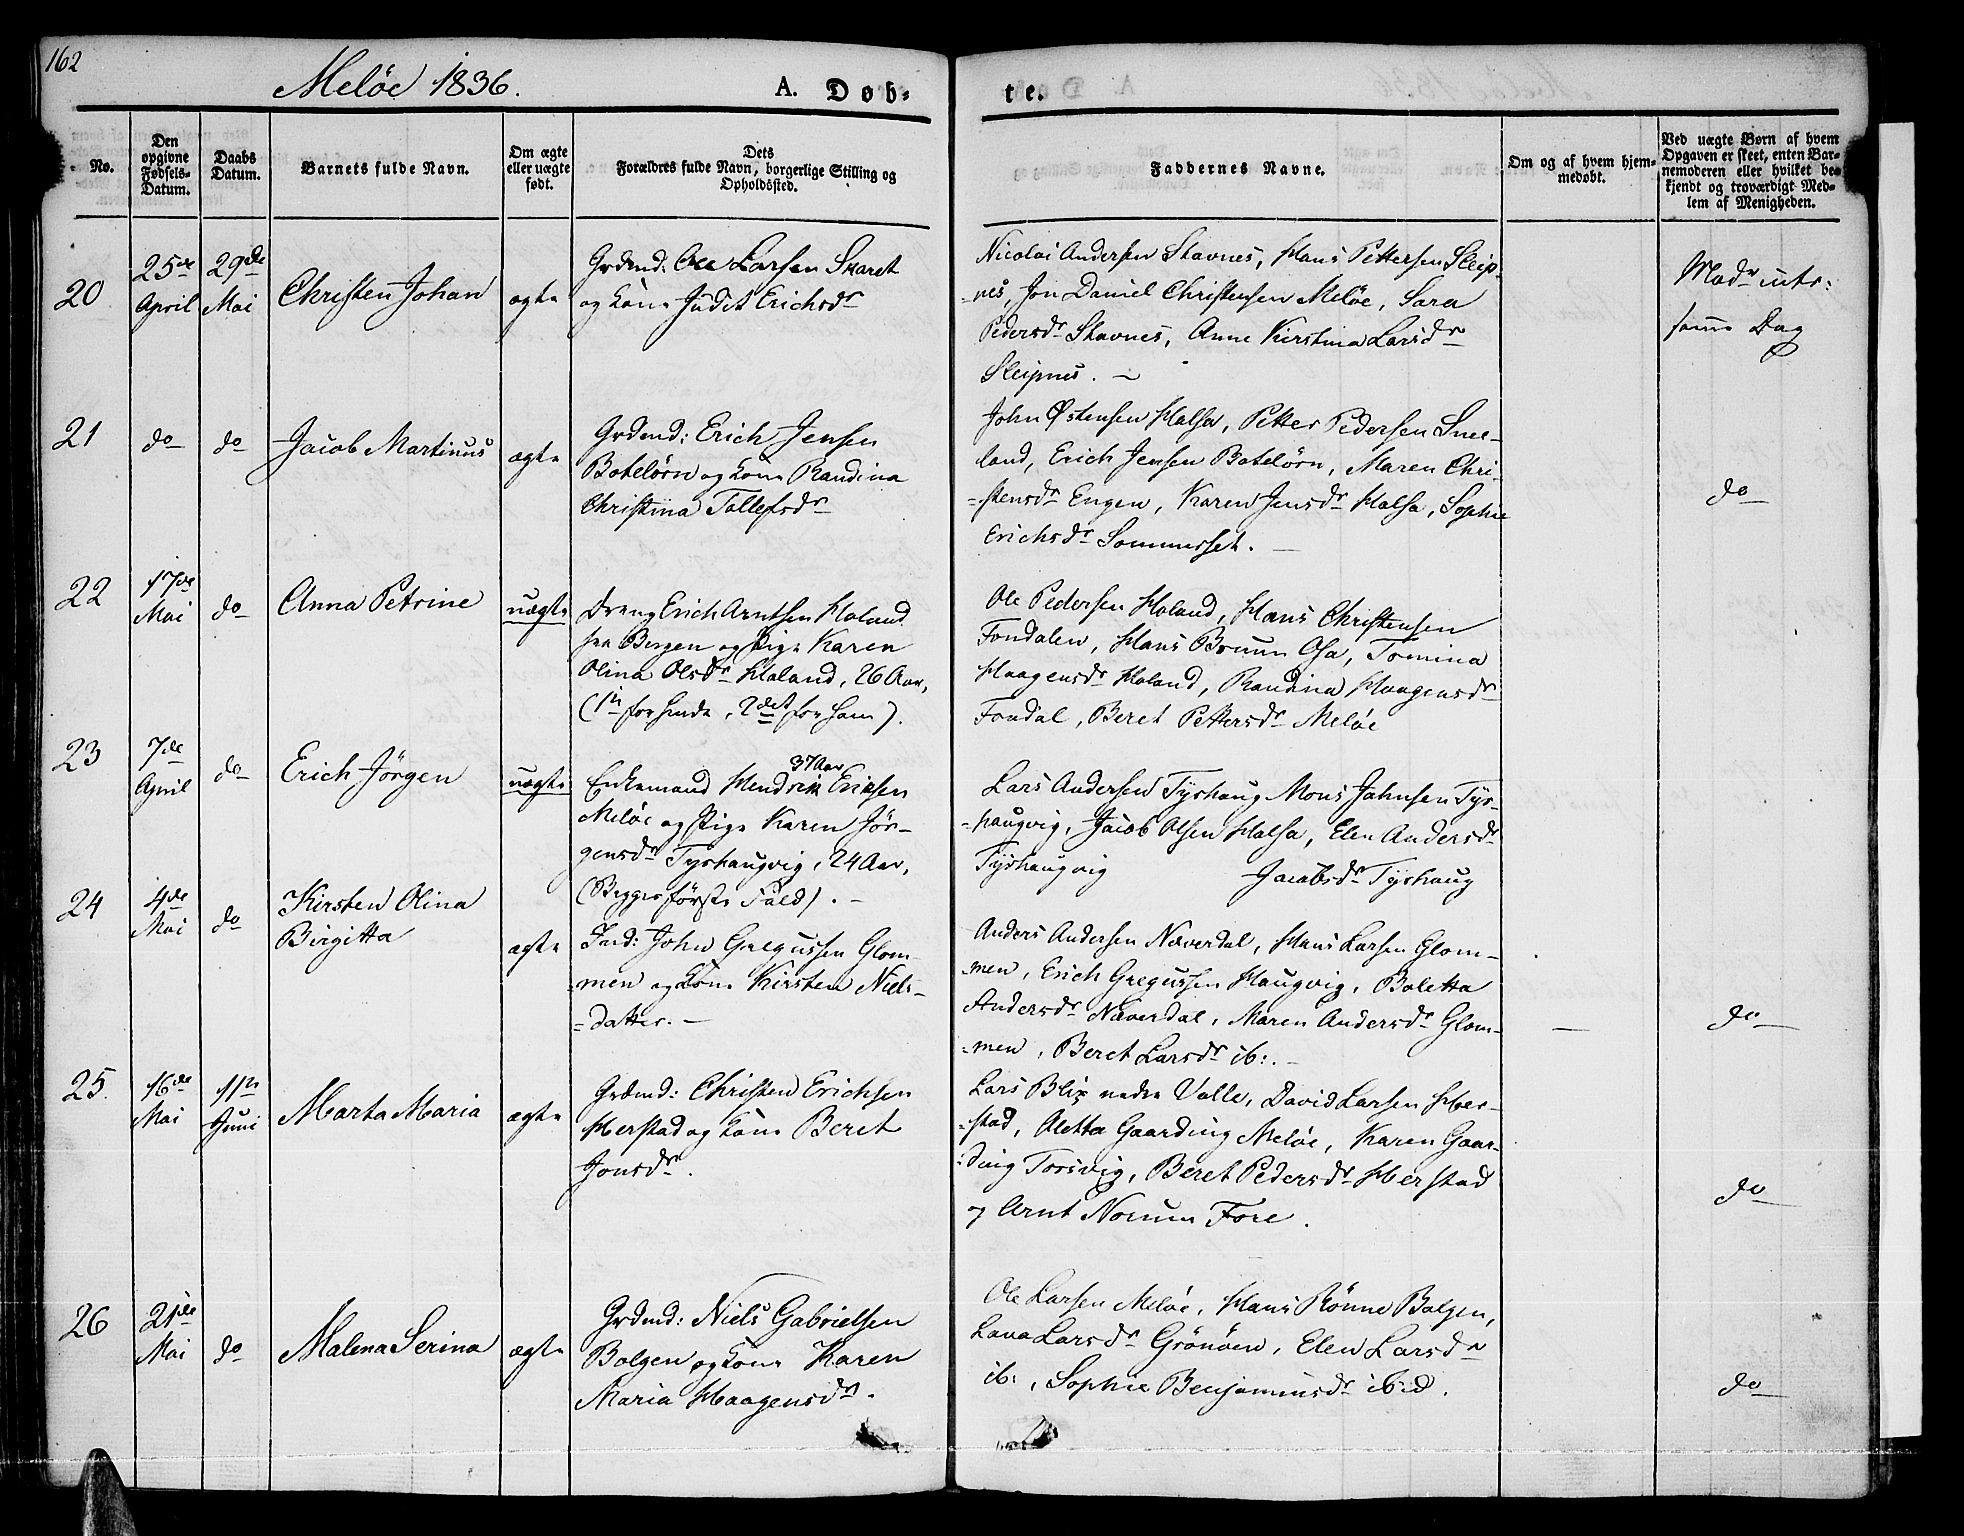 162
Meløe 1836.
A. Døb-
te.
No.
Den opgivne Fødsels-Datum.
Daabs Datum.
Barnets fulde Navn.
Om ægte eller uægte født.
Dets Forældres fulde Navn, borgerlige Stilling og Opholdssted.
Faddernes Navne.
Om og af hvem hjemmedøbt.
Ved uægte Børn af hvem Opgaven er skeet, enten Barnemoderen eller hvilket bekjendt og troværdigt Medlem af Menigheden.
20
25de April
29de Mai
Christen Johan
ægte
Grdmd: Ole Larsen Skaret
og Kone Judit Erichsdr
Nicolai Andersen Stavnes, Hans Pettersen Sleip-
-nes, Jon Daniel Christensen Meløe, Sara
Pedersdr Stavnes, Anne Kirstina Larsdr
Sleipnes. –
Modr intr:
samme Dag
21
do
do
Jacob Martinus
ægte
Grdmd: Erich Jensen
Botelørn og Kone Randina
Christiina Tollefsdr
John Østensen Halsa, Petter Pedersen Snee-
land, Erich Jensen Botelørn, Maren Chri-
-stensdr Engen, Karen Jensdr Halsa, Sophie
Erichsdr Sommerset. –
do
22
17de Mai
do
Anna Petrine
uægte
Dreng Erich Arntsen Haland
fra Bergen og Pige Karen
Olina Olsdr Haland, 26 Aar,
(1ste for hende, 2det for ham).
Ole Pedersen Haland, Hans Christensen
Fondalen, Hans Bruun Osa, Tomina
Haagensdr Haland, Randina Haagensdr
Fondal, Beret Pettersdr Meløe
23
7de April
do
Erich Jörgen
uægte
37 Aar
Enkemand Hendrik Eriksen
Meløe og Pige Karen Jör-
gensdr Tyshaugvig, 24 Aar,
(Begges förste Fald). –
Lars Andersen Tyshaug Mons Johnsen Tys-
-haugvig, Jacob Olsen Halsa, Elen Andersdr
Tyshaugvig Jacobsdr Tyshaug
24
4de Mai
do
Kirsten Olina
Birgitta
ægte
Ind: John Gregussen Glom-
-men og Kone Kirsten Niels-
-datter. –
Anders Andersen Næverdal, Hans Larsen Glom-
-men, Erich Gregussen Haugvig, Boletta
Andersdr Næverdal, Maren Andersdr Glom-
-men, Beret Larsdr ib:. –
—
do
25.
16de Mai
11te Juni
Marta Maria
ægte
Grdmd: Christen Erichsen
Herstad og Kone Beret
Jonsdr.
Lars Blix nedre Valle, David Larsen Her-
-stad, Aletta Gaarding Meløe, Karen Gaar-
-ding Torsvig, Beret Pedersdr Herstad
og Arnt Norum Fore.
do
26
21de Mai
do
Malena Serina
ægte
Grdmd: Niels Gabrielsen
Bolgen og Kone Karen
Maria Haagensdr.
Ole Larsen Meløe, Hans Rönne Bolgen,
Lava Larsdr Grönöen, Elen Larsdr
ib:, Sophie Benjaminsdr ibid.
do